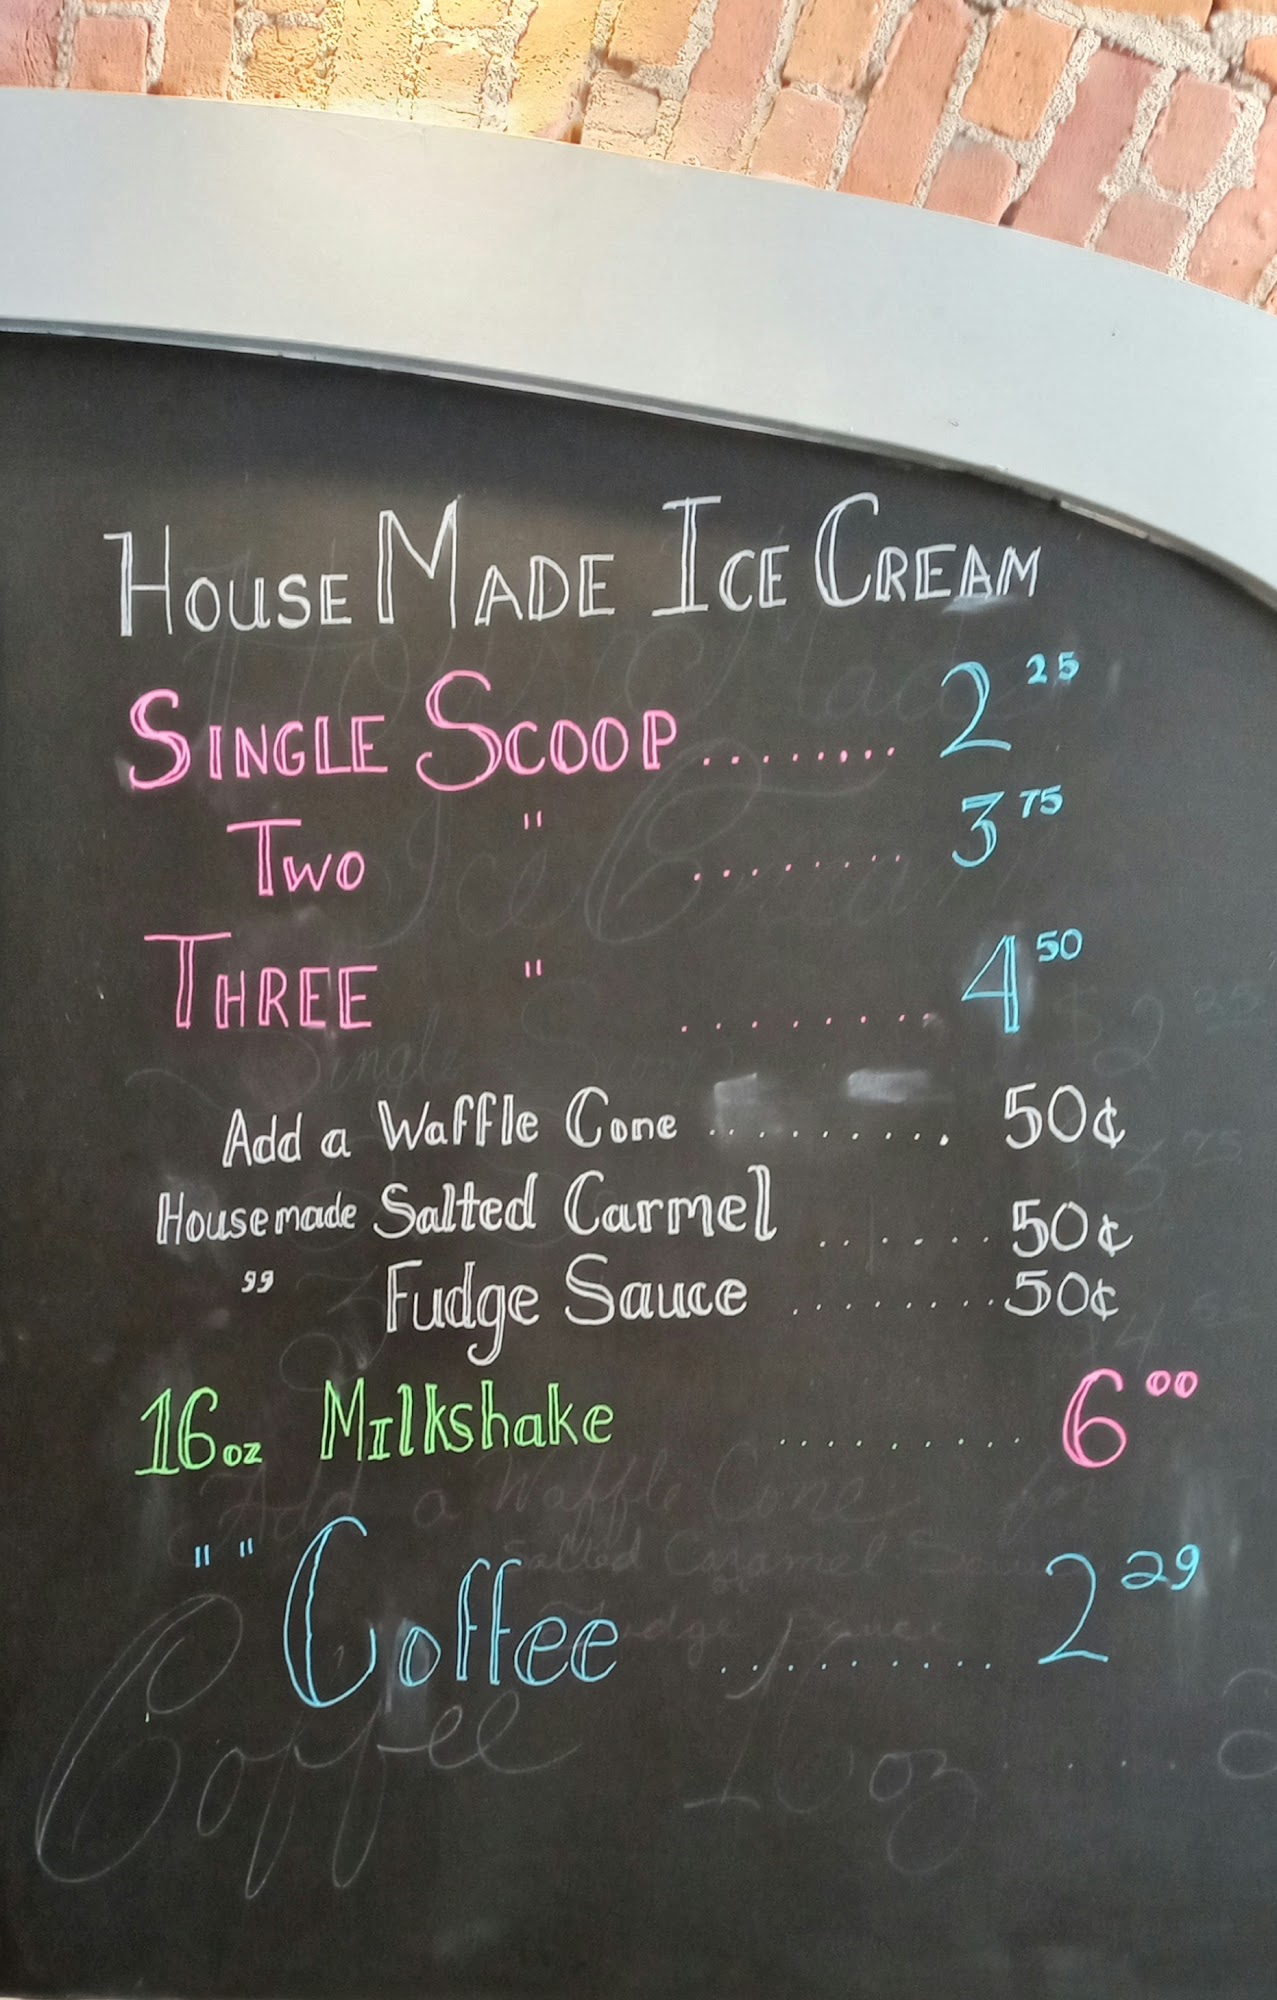 House Made Ice Cream
Single Scoop ........ 2 25
Two " ........ 3 75
Three " ......... 4 50
Add a Waffle Cone .......... 50¢
Housemade Salted Carmel ....... 50¢
" Fudge Sauce ......... 50¢
16oz Milkshake .......... 6 00
" " Coffee .......... 2 29
Coffee 16oz